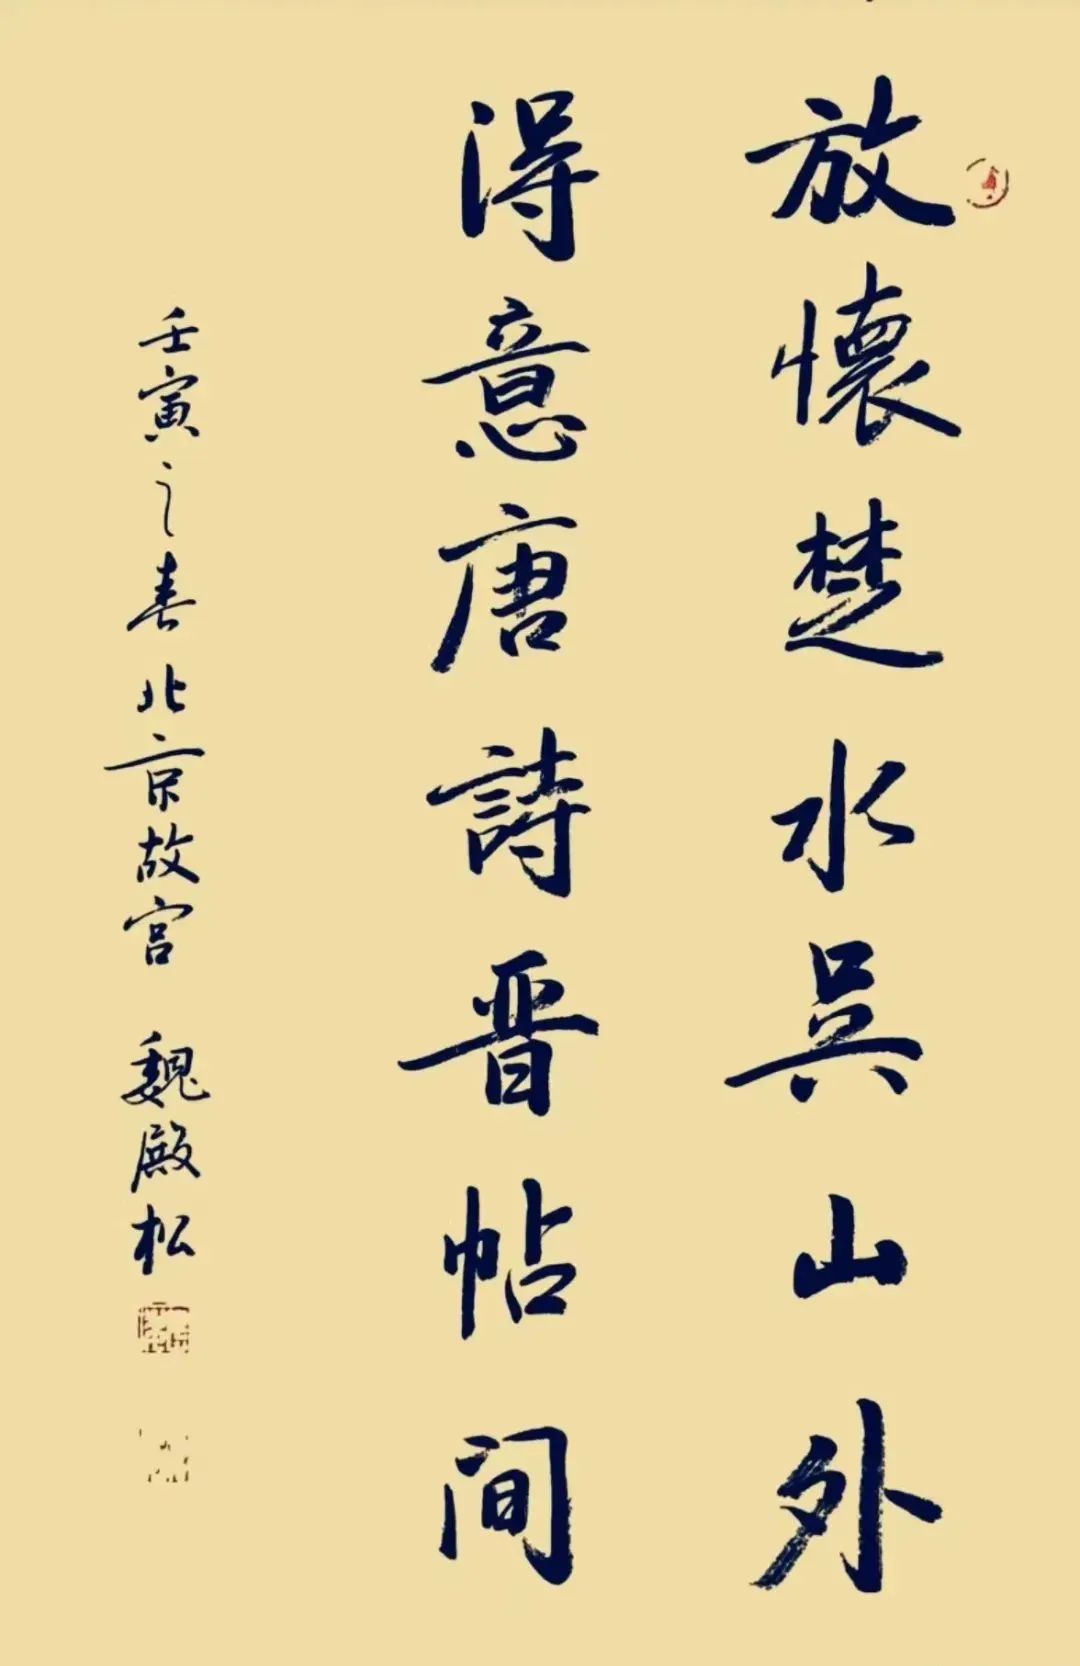 放懷楚水吴山外
得意唐詩晋帖间
壬寅之春北京故宫 魏殿松